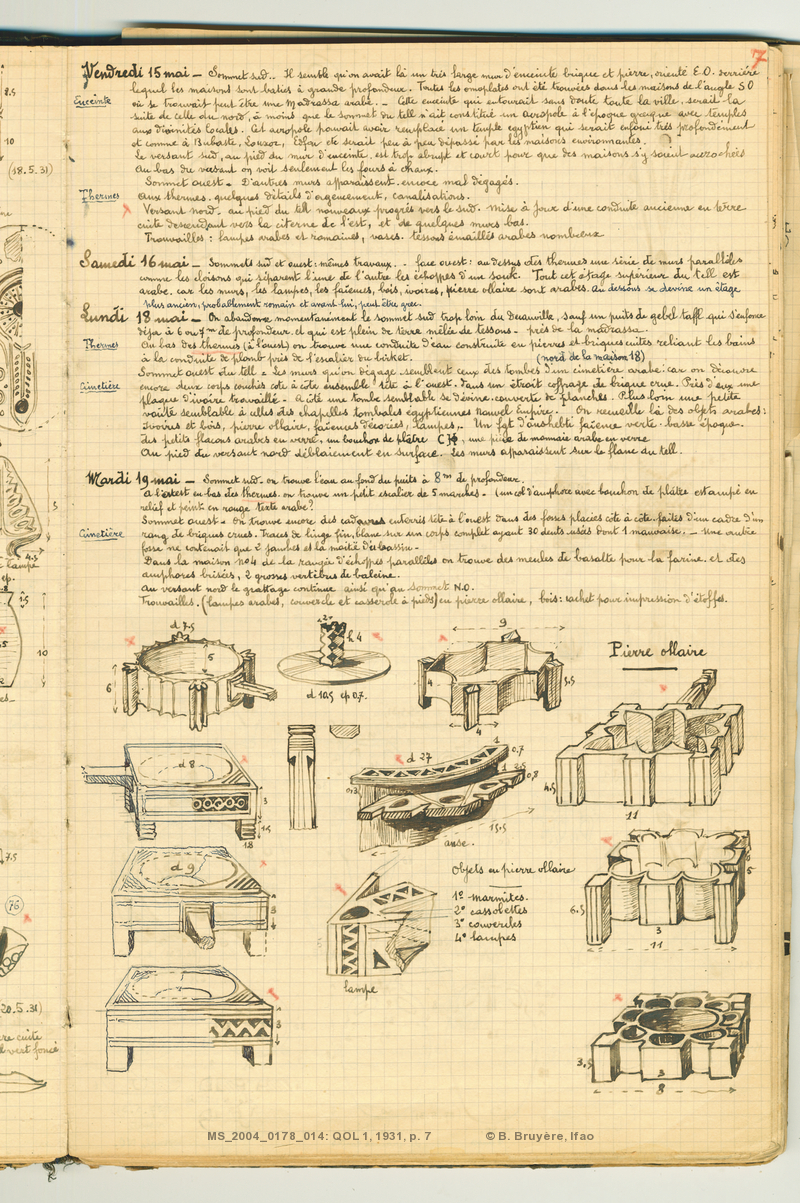 7
Vendredi 15 mai — Sommet sud.. Il semble qu'on avait là un très large mur d'enceinte brique et pierre, orienté E.O. derrière
Enceinte
lequel les maisons sont baties à grande profondeur. Toutes les omoplates ont été trouvées dans les maisons de l'angle SO
où se trouvait peut être une Madrassa arabe. — Cette enceinte qui entourait sans doute toute la ville, serait la
suite de celle du nord, à moins que le sommet du tell n'ait constitué un acropole à l'époque grecque avec temples
aux divinités locales. Cet acropole pouvait avoir remplacé un temple egyptien qui serait enfoui très profondément
et comme à Bubaste, Louxor, Edfou etc serait peu à peu dépassé par les maisons environnantes.
Le versant sud, au pied du mur d'enceinte, est trop abrupt et court pour que des maisons s'y soient accrochées
Au bas du versant on voit seulement les fours à chaux.
Sommet ouest — D'autres murs apparaissent encore mal dégagés.
Thermes
Aux thermes, quelques détails d'agencement, canalisations.
Versant nord, au pied du tell nouveaux progrès vers le sud. Mise à jour d'une conduite ancienne en terre
cuite descendant vers la citerne de l'est, et de quelques murs bas.
Trouvailles : lampes arabes et romaines, vases, tessons émaillés arabes nombreux
Samedi 16 mai — Sommets sud et ouest : mêmes travaux. — face ouest : au dessus des thermes une série de murs parallèles
comme les cloisons qui séparent l'une de l'autre les échoppes d'un souk. Tout cet étage supérieur du tell est
arabe, car les murs, les lampes, les faïences, bois, ivoires, pierre ollaire sont arabes. Au dessous se devine un étage
plus ancien, probablement romain et avant lui, peut être grec.
Lundi 18 mai — On abandonne momentanément le sommet sud trop loin du Decauville, sauf un puits de gebel taffl qui s'enfonce
déjà à 6 ou 7 m de profondeur, et qui est plein de terre mêlée de tessons — près de la madrassa.
Thermes
Au bas des thermes (à l'ouest) on trouve une conduite d'eau construite en pierres et briques cuites reliant les bains
à la conduite de plomb près de l'escalier du birket. (nord de la maison 18)
Sommet ouest du tell = Les murs qu'on dégage semblent ceux des tombes d'un cimetière arabe car on découvre
Cimetière
encore deux corps couchés côte à côte ensemble tête à l'ouest, dans un étroit coffrage de brique crue. Près d'eux une
plaque d'ivoire travaillé — A côté une tombe semblable se devine couverte de planches. Plus loin une petite
voûte semblable à celles des chapelles tombales égyptiennes nouvel Empire. On recueille là des objets arabes :
Ivoires et bois, pierre ollaire, faïences décorées, lampes,. Un fgt d'oushebti faïence verte basse époque.
des petits flacons arabes en verre, un bouchon de plâtre, une pièce de monnaie arabe en verre
Au pied du versant nord déblaiement en surface. Les murs apparaissent sur le flanc du tell.
Mardi 19 mai — Sommet sud. on trouve l'eau au fond du puits à 8 m de profondeur.
A l'ouest en bas des thermes, on trouve un petit escalier de 5 marches. (un col d'amphore avec bouchon de plâtre estampé en
relief et peint en rouge texte arabe?
Sommet ouest — On trouve encore des cadavres enterrés tête à l'ouest dans des fosses placées côte à côte, faites d'un cadre d'un
Cimetière
rang de briques crues. Traces de linge fin, blanc sur un corps complet ayant 30 dents usées dont 1 mauvaise. — Une autre
fosse ne contenait que 2 jambes et la moitié du bassin —
Dans la maison no 4 de la rangée d'échoppes parallèles on trouve des meules de basalte pour la farine, et des
amphores brisées, 2 grosses vertèbres de baleine.
Au versant nord le grattage continue ainsi qu'au Sommet N.O.
Trouvailles. (lampes arabes, couvercle et casserole à pieds) en pierre ollaire, bois: cachet pour impression d'étoffes.
d 7.5
5
6
2
h 4
d 10.5 ep 0.7.
9
4
5.5
4
Pierre ollaire
4.5
11
d 8
3
1.5
1.8
d 27
1
0.7
2.5
0.8
0.3
15.5
anse.
d 9
3
Objets en pierre ollaire
1º marmites.
2º cassolettes
3º couvercles
4º lampes
lampe
5
6.5
3
11
3
3.5
3
8
8.5
10
(18.5.31)
lampe
ep.
10
7.5
76
(20.5.31)
cuite
vert foncé
MS_2004_0178_014: QOL 1, 1931, p. 7 © B. Bruyère, Ifao